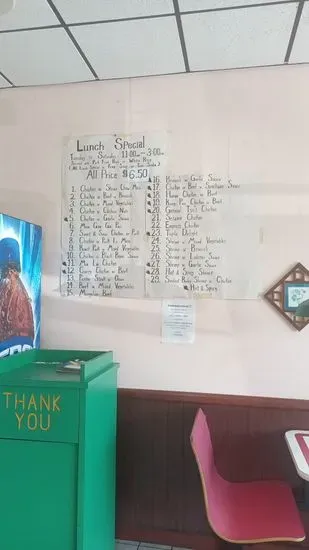 Lunch Special
Tuesday - Saturday 11:00am - 3:00pm
Served with Pork Fried Rice or White Rice
All Price $6.50
1. Chicken or Shrimp Chow Mein
2. Chicken or Beef w. Broccoli
3. Chicken w. Mixed Vegetables
4. Chicken w. Cashew Nuts
5. Chicken w. Garlic Sauce
6. Moo Goo Gai Pan
7. Sweet & Sour Chicken or Pork
8. Chicken or Pork Lo Mein
9. Roast Pork w. Mixed Vegetable
10. Chicken w. Black Bean Sauce
11. Ma La Chicken
12. Curry Chicken or Beef
13. Pepper Steak w. Onion
14. Beef w. Mixed Vegetables
15. Mongolian Beef
16. Broccoli w. Garlic Sauce
17. Chicken or Beef w. Szechuan Sauce
18. Hunan Chicken or Beef
19. Kung Pao Chicken or Beef
20. General Tso's Chicken
21. Sesame Chicken
22. Express Chicken
23. Triple Delight
24. Shrimp w. Mixed Vegetables
25. Shrimp w. Broccoli
26. Shrimp w. Lobster Sauce
27. Shrimp w. Garlic Sauce
28. Hot & Spicy Shrimp
29. Shrimp or Chicken
Hot & Spicy
THANK
YOU